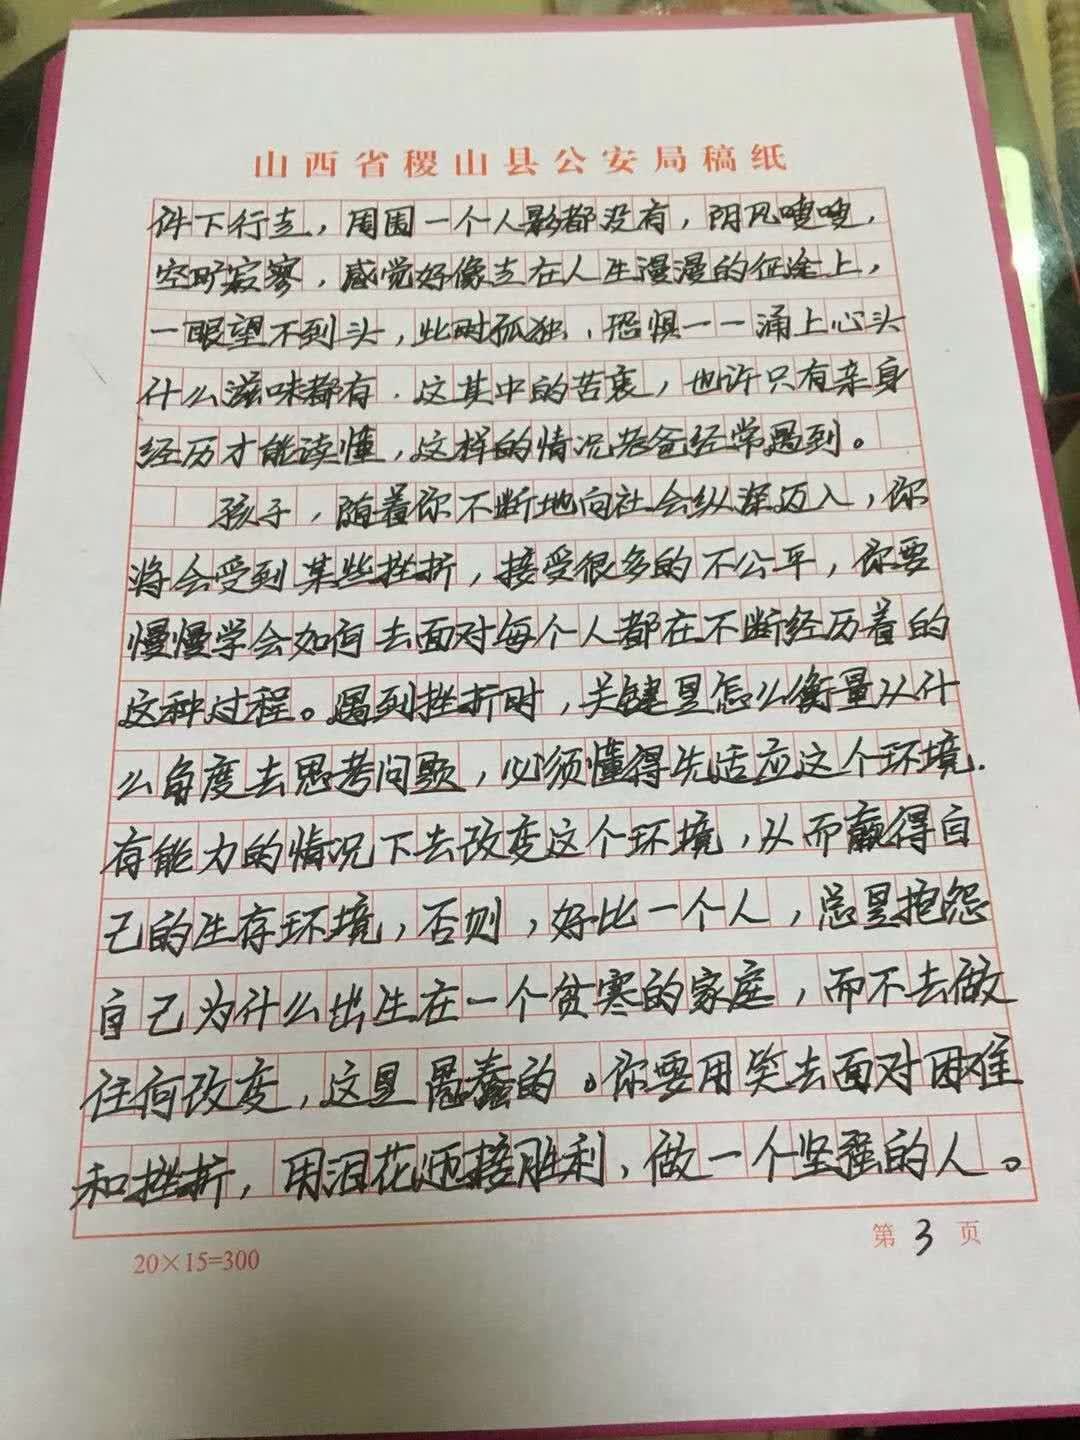 山西省稷山县公安局稿纸
件下行走，周围一个人影都没有，阴风嗖嗖，
空旷寂寥，感觉好像走在人生漫漫的征途上，
一眼望不到头，此时孤独、恐惧一一涌上心头
什么滋味都有．这其中的苦衷，也许只有亲身
经历才能读懂，这样的情况老爸经常遇到。
孩子，随着你不断地向社会纵深迈入，你
将会受到某些挫折，接受很多的不公平，你要
慢慢学会如何去面对每个人都在不断经历着的
这种过程。遇到挫折时，关键是怎么衡量从什
么角度去思考问题，必须懂得先适应这个环境．
有能力的情况下去改变这个环境，从而赢得自
己的生存环境，否则，好比一个人，总是抱怨
自己为什么出生在一个贫寒的家庭，而不去做
任何改变，这是愚蠢的。你要用笑去面对困难
和挫折，用泪花迎接胜利，做一个坚强的人。
20×15=300
第3页